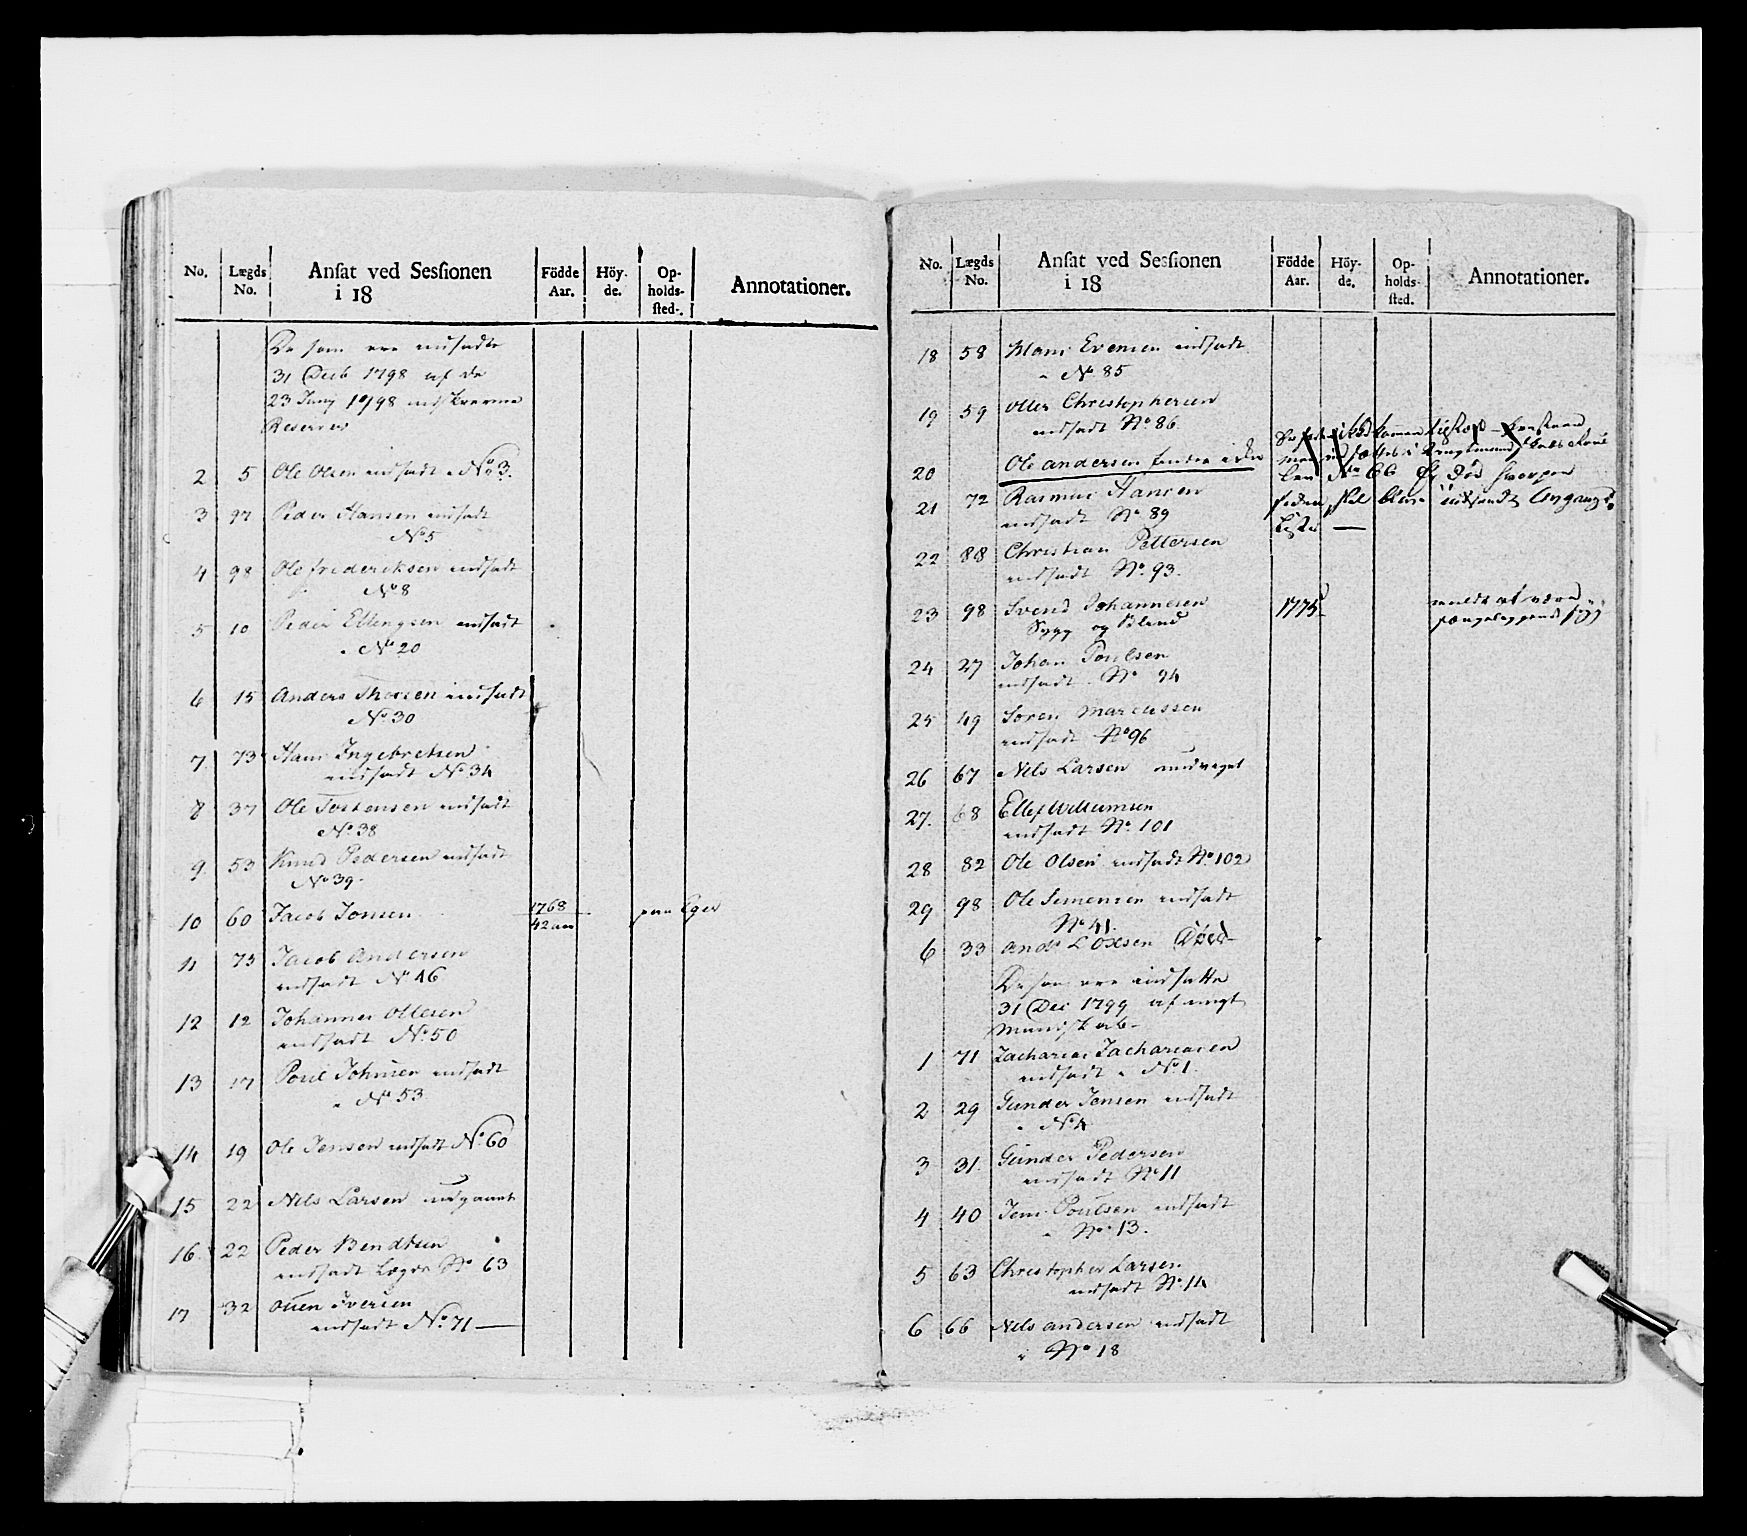 No. Lægds No. Ansat ved Sessionen i 18 Födde Aar. Höy- de. Op- holds- sted. Annotationer.
De som ere indsadte
31 Decb 1798 af de
23 Juny 1798
Reserver
2 5 Ole Olsen indsadt No 3.
3 97 Peder Hansen indsadt
No 5
4 98 Ole frederiksen indsadt
No 8
5 10 Peder Ellengsen indsadt
No 20
6 15 Anders Thorsen indsadt
No 30
7 73 Hans Ingebretsen
indsadt No 34
8 37 Ole Tostensen indsadt
No. 38
9 53 Knud Pedersen indsadt
No 39.
10 60 Jacob Jonsen 1768 paa Eger
42 aar
11 73 Jacob Andersen
indsadt No 46
12 12 Johannes Ollesen
indsadt No. 50
13 17 Poul Johnsen indsadt
No 53
14 19 Ole Jensen indsadt No. 60
15 22 Nils Larsen udgaaet
16. 22 Peder Bendtsen
indsadt Lægds No 63
17 32 Ouen Iversen
indsadt No. 71 —
No. Lægds No. Ansat ved Sessionen i 18 Födde Aar. Höy- de. Op- holds- sted. Annotationer.
18 58 Hans Evensen indsadt
No. 85
19 59 Oller Christophersen
indsadt No. 86.
20 Ole Andersen
No 66 Død hvorpaa
21 72 Rasmus Hansen
indsadt No 89
22 88 Christian Pettersen
indsadt No. 93.
23 98 Svend Johannesen 1775 meldt at være
Syg og Blind sængeliggende syg
24 27 Johan Poulsen
indsadt No 94
25 49 Soren Marcussen
indsadt No 96
26 67 Nils Larsen undveget
27. 68 Ellef Willumsen
indsadt No. 101
28 82 Ole Olsen indsadt No. 102
29 98 Ole Simensen indsadt
No 41.
6 33 Ands Olsen Død
De som ere indsatte
31 Dec 1799 af ungt
Mandskab
1 71 Zacharias Zachariasen
indsadt No 1.
2 29 Gunder Jensen indsadt
No 4
3 31. Gunder Pedersen
indsadt No 11
4 40 Jens Poulsen indsadt
No 13.
5 63 Christopher Larsen
indsadt No. 14
6 66 Nils Andersen indsadt
No 18